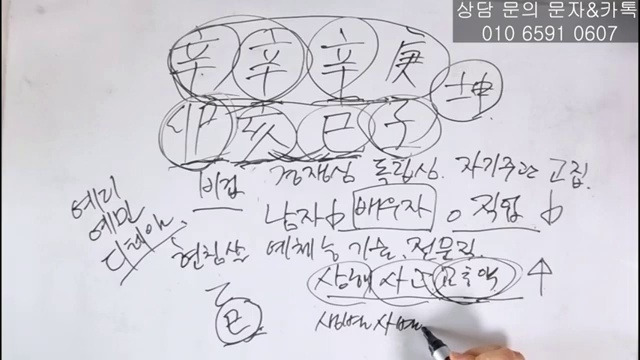 상담 문의 문자&카톡
010 6591 0607
辛 辛 辛 庚
坤
卯 亥 巳 子
비겁 경쟁심 독립심. 자기주관 고집.
예리
예민
디테일
남자 배우자 직업
현침살 예체능 기술, 전문직
상해 사고
乙
巳
생별사별